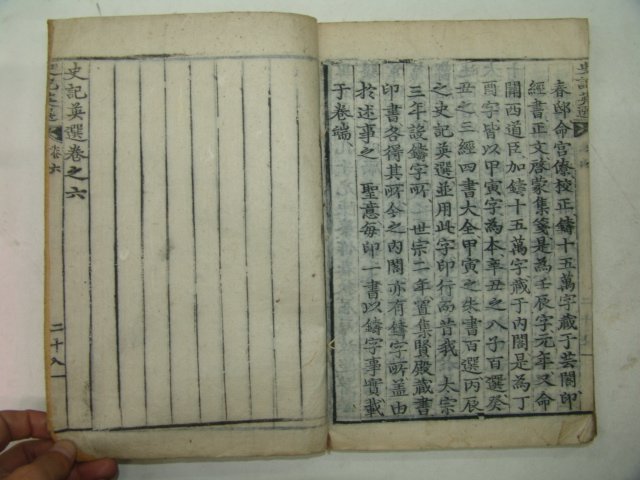 史記英選
春邸命宮僚校正鑄十五萬字藏于芸閣印
經書正文啓蒙集箋是為壬辰字元年又命
關西道臣加鑄十五萬字藏于內閣是為丁
酉字皆以甲寅字為本辛丑之八子百選癸
丑之三經四書大全甲寅之朱書百選丙辰
之史記英選並用此字印行而昔我 太宗
三年設鑄字所 世宗二年置集賢殿藏書
印書各得其所今之內閣亦有鑄字所盖由
於述事之 聖意每印一書以鑄字事實載
于卷端
史記英選卷之六
史記英選 卷六 二十八